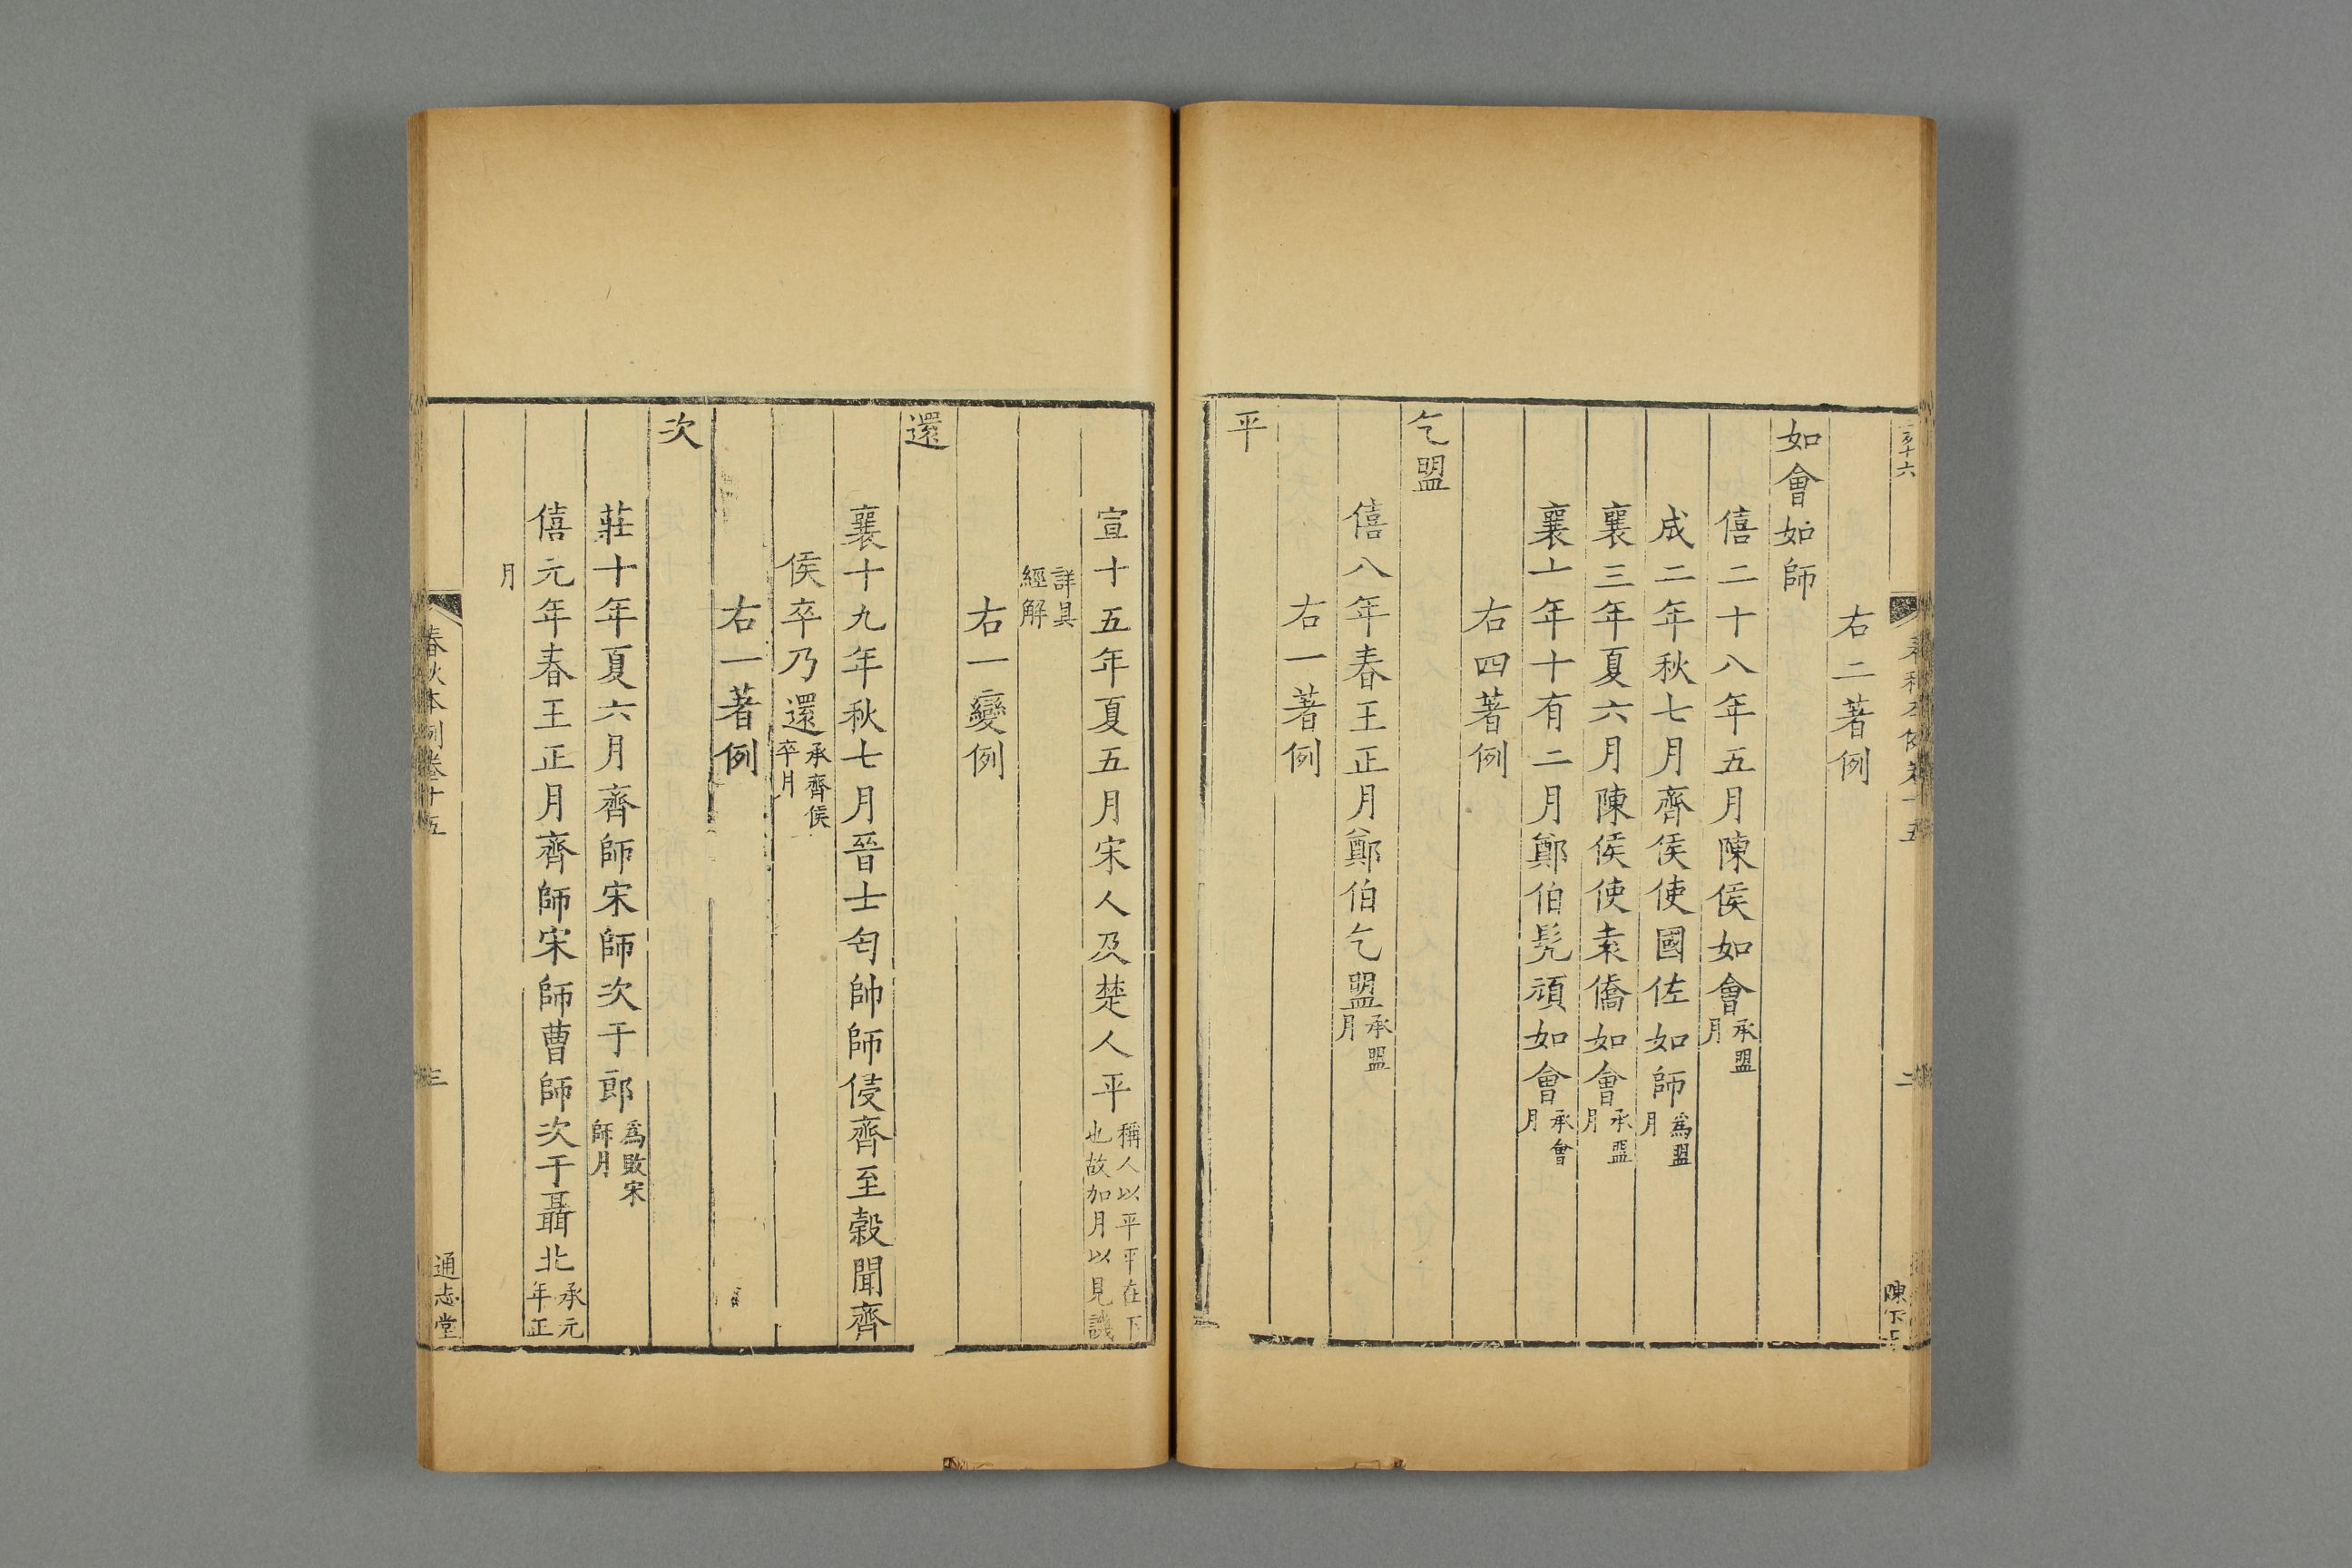 右二著例
如會如師
僖二十八年五月陳侯如會承盟月
成二年秋七月齊侯使國佐如師爲盟月
襄三年夏六月陳侯使袁僑如會承盟月
襄七年十有二月鄭伯髠頑如會承會月
右四著例
乞盟
僖八年春王正月鄭伯乞盟承盟月
右一著例
平
宣十五年夏五月宋人及楚人平稱人以平平在下也故加月以見譏
詳具經解
右一變例
還
襄十九年秋七月晉士匄帥師侵齊至穀聞齊
侯卒乃還承齊侯卒月
右一著例
次
莊十年夏六月齊師宋師次于郎爲敗宋師月
僖元年春王正月齊師宋師曹師次于聶北承元年正
月
春秋本例卷十五
三
通志堂